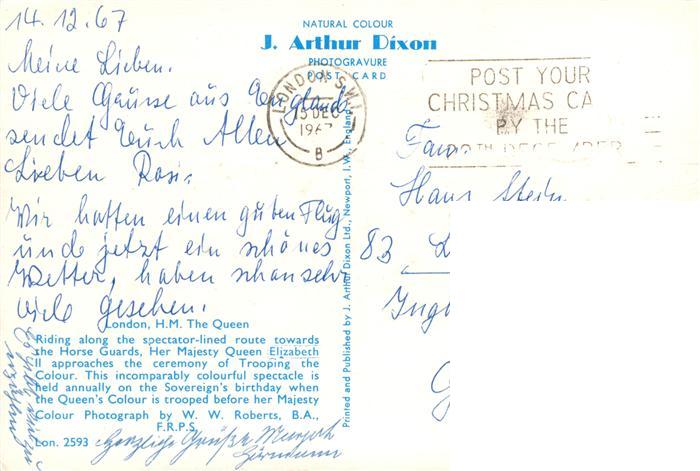 14.12.67
Meine Lieben.
Viele Grüsse aus England
sendet Euch Allen
Lieben Rosi.
Wir hatten einen guten Flug
und jetzt ein schönes
Wetter, haben schon sehr
viele gesehen.
Herzliche Grüße
NATURAL COLOUR
J. Arthur Dixon
PHOTOGRAVURE
POST CARD
LONDON S.W.1
13 DEC
1967
B
POST YOUR
CHRISTMAS CA
BY THE
Fam.
Hans Stein
83
Printed and Published by J. Arthur Dixon Ltd., Newport, I.W., England
London, H.M. The Queen
Riding along the spectator-lined route towards
the Horse Guards, Her Majesty Queen Elizabeth
II approaches the ceremony of Trooping the
Colour. This incomparably colourful spectacle is
held annually on the Sovereign's birthday when
the Queen's Colour is trooped before her Majesty
Colour Photograph by W. W. Roberts, B.A.,
F.R.P.S.
Lon. 2593